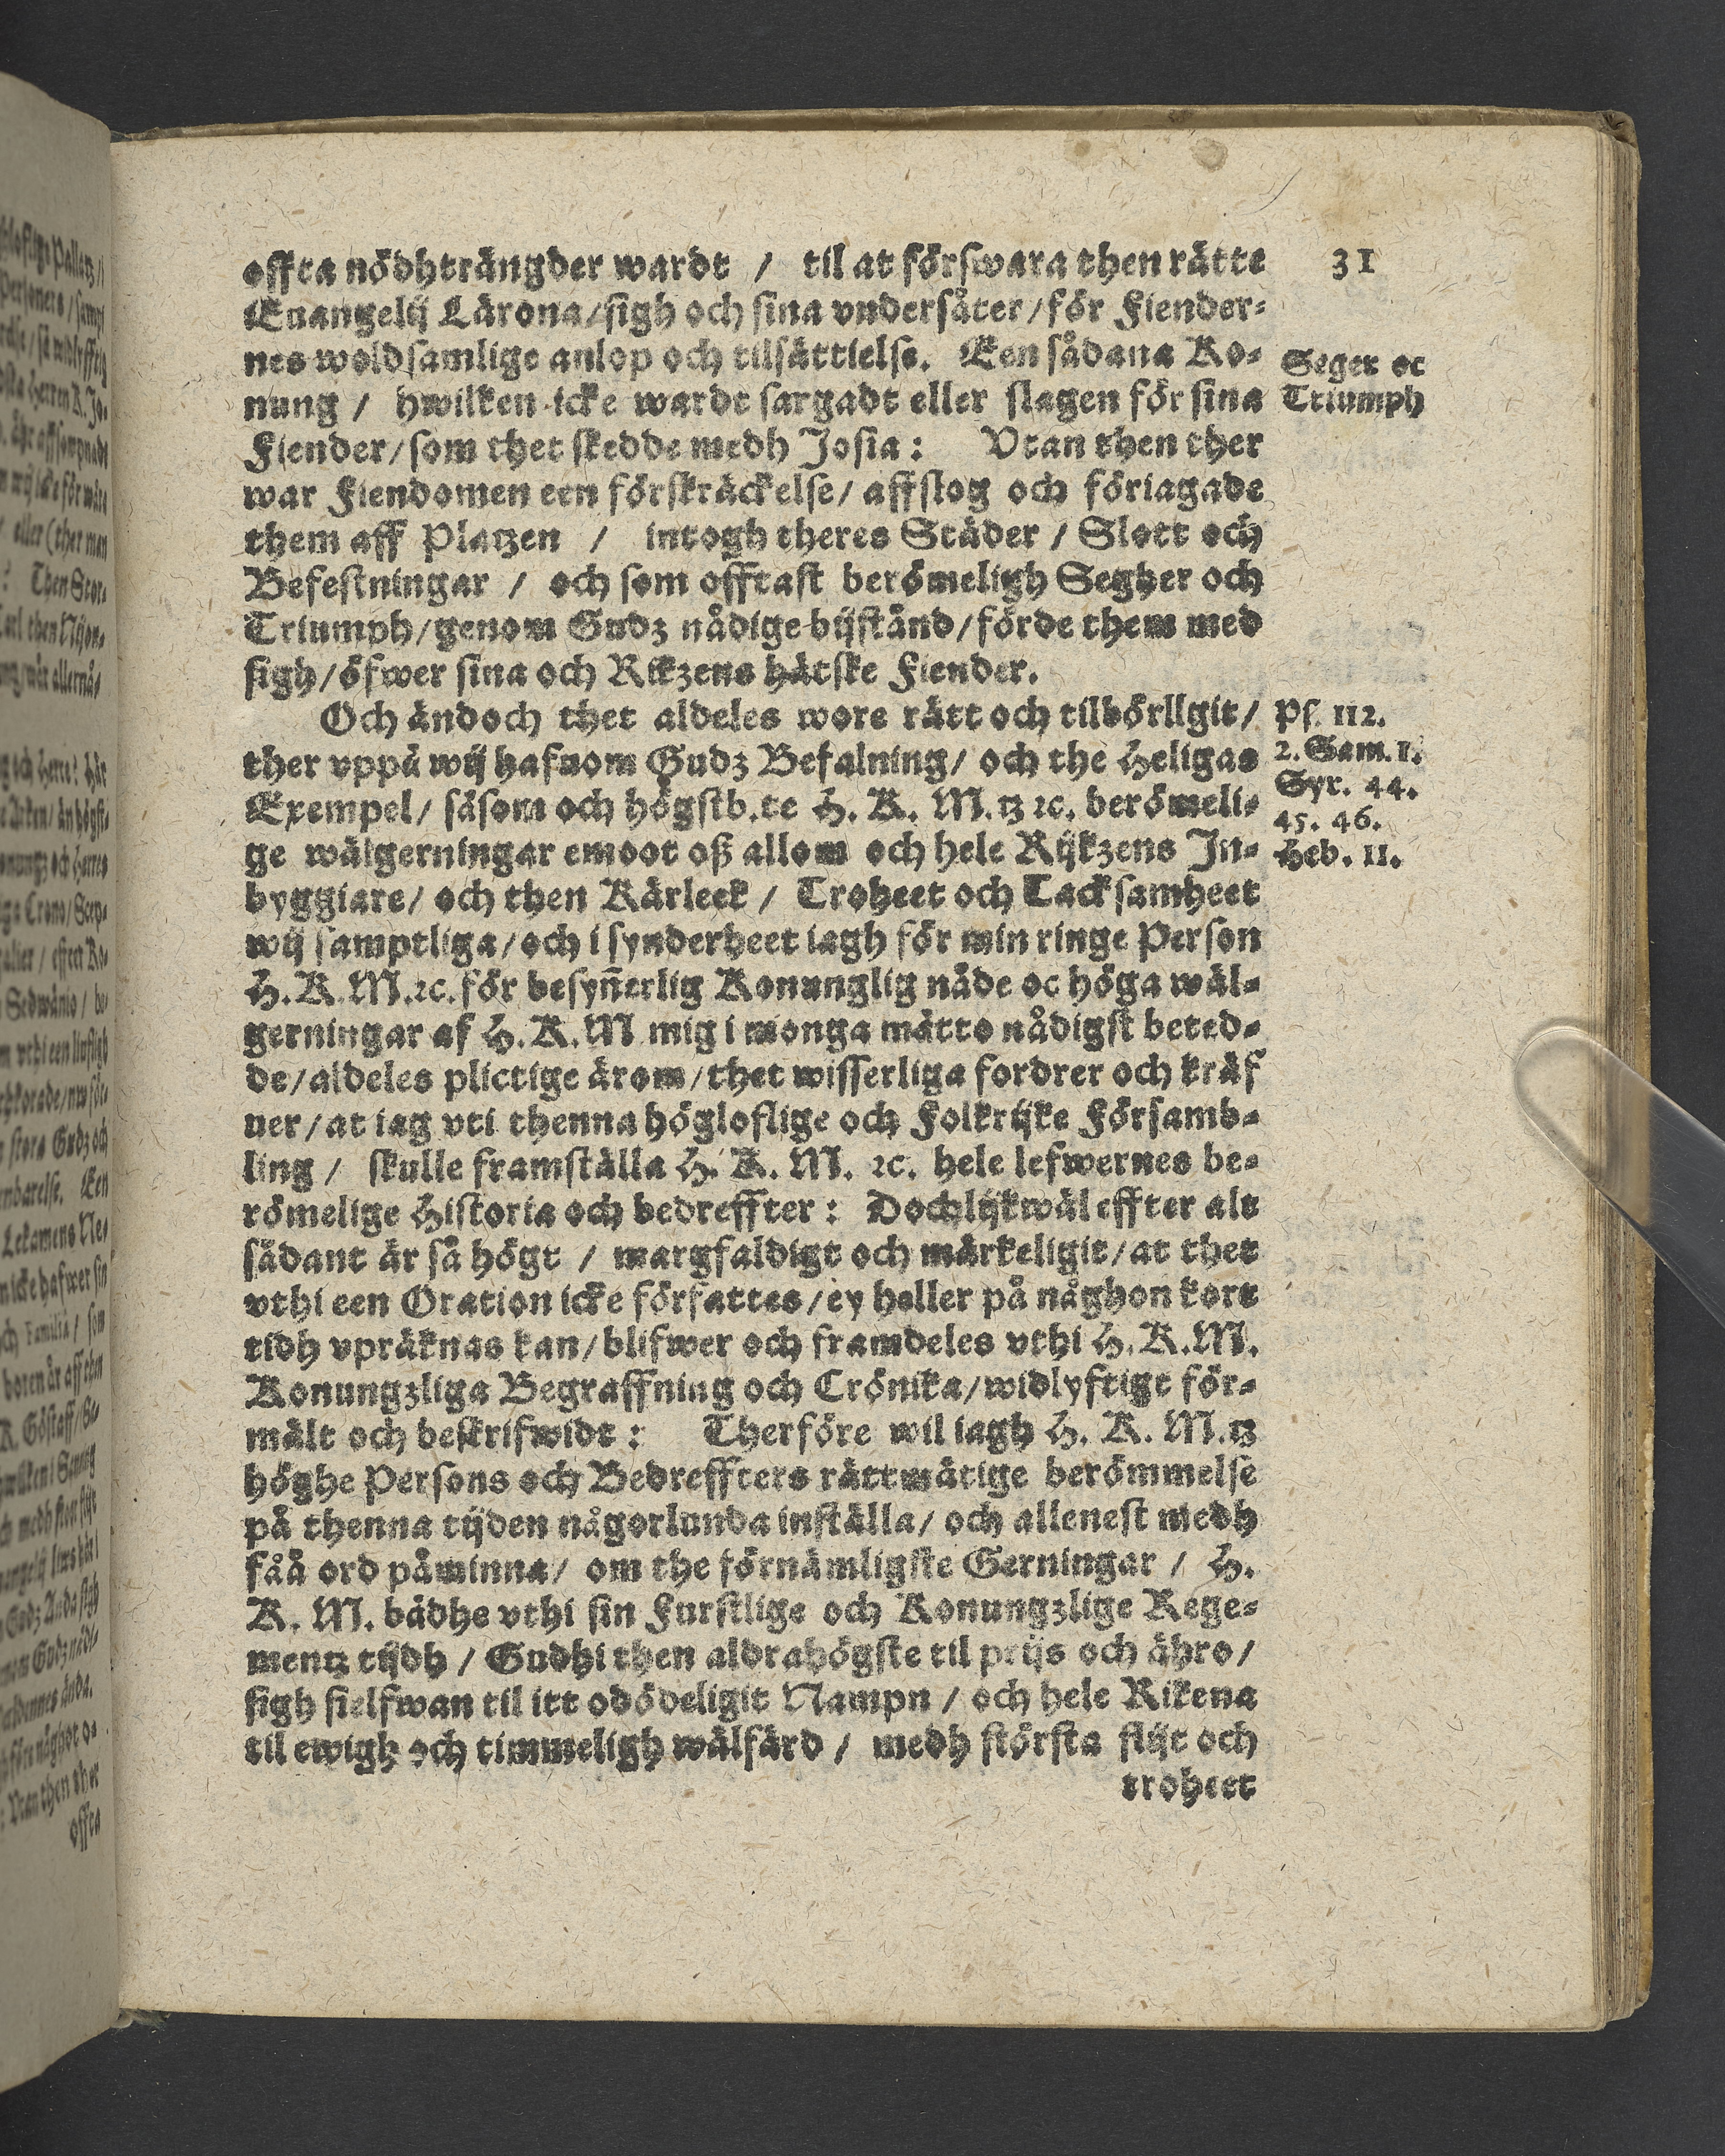 31
offta nödhträngder wardt / til at förswara then rätte
Euangelij Lärona/sigh och sina vndersåter/för Fiender-
nes woldsamlige anlop och tilsättielse. Een sådana Ko-
nung / hwilken icke wardt sargadt eller slagen för sina
Fiender/som thet skedde medh Josia: Vtan then ther
war Fiendomen een förskräckelse/ affslog och föriagade
them aff Platzen / intogh theres Städer / Slott och
Befestningar / och som offtast berömeligh Segher och
Triumph/genom Gudz nådige bijstånd/förde them med
sigh/öfwer sina och Rikzens hätske Fiender.
Seger oc
Triumph
Och ändoch thet aldeles wore rätt och tilbörllgit/
ther vppå wij hafuom Gudz Befalning/ och the Heligas
Exempel/ såsom och högstb.te H. K. M.tz ꝛc. berömeli-
ge wälgerningar emoot oß allom och hele Rijkzens In-
byggiare/ och then Kärleek / Troheet och Tacksamheet
wij samptliga/och i synderheet iagh för min ringe Person
H.K.M.ꝛc. för besyn̄erlig Konunglig nåde oc höga wäl-
gerningar af H.K.M mig i monga mätto nådigst beted-
de/aldeles plictige ärom/thet wisserliga fordrer och kräf
uer/at iag vti thenna högloflige och Folkrijke Församb-
ling / skulle framställa H. K. M. ꝛc. hele lefwernes be-
römelige Historia och bedreffter: Dochlijkwäl effter alt
sådant är så högt / margfaldigt och märkeligit/at thet
vthi een Oration icke författes/ey heller på någhon kort
tidh vpräknas kan/blifwer och framdeles vthi H.K.M.
Konungzliga Begraffning och Crönika/widlyftigt för-
mält och beskrifwidt: Therföre wil iagh H. K. M.tz
höghe Persons och Bedreffters rättmätige berömmelse
på thenna tijden någorlunda inställa/ och allenest medh
fåå ord påminna/ om the förnämligste Gerningar / H.
K. M. bådhe vthi sin Furstlige och Konungzlige Rege-
mentz tijdh / Gudhi then aldrahögste til prijs och ähro/
sigh sielfwan til itt odödeligit Nampn / och hele Rikena
til ewigh och timmeligh wälfärd / medh största flijt och
troheet
Ps. 112.
2. Sam. 1.
Syr. 44.
45. 46.
Heb. 11.